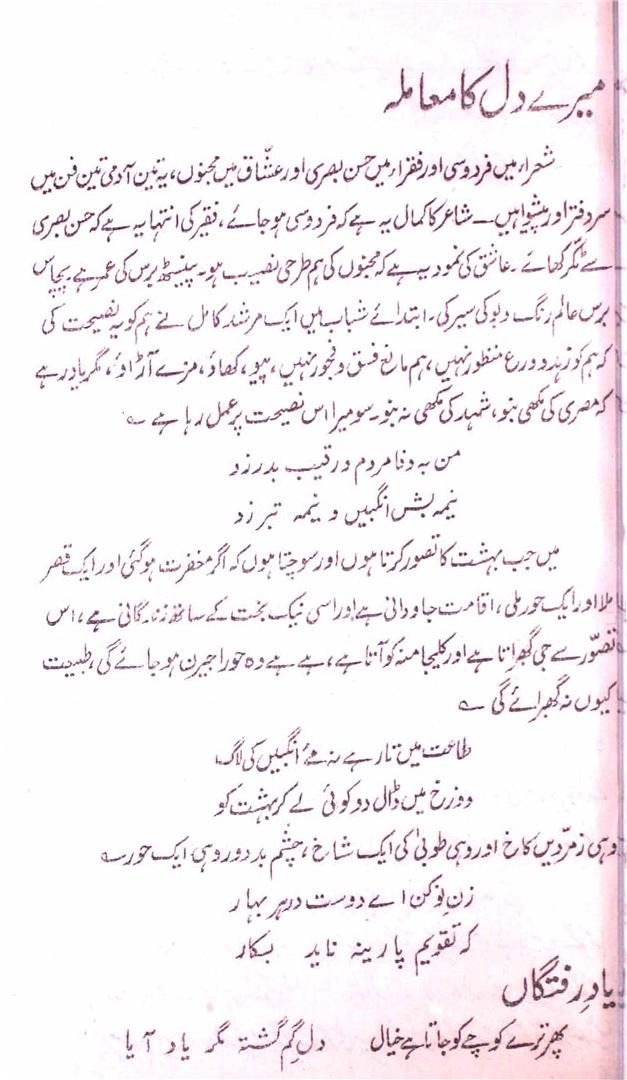 میرے دل کا معاملہ
شعراء میں فردوسی اور فقراء میں حسن بصری اور عشّاق میں مجنوں، یہ تین آدمی تین فن میں
سر دفتر اور پیشوا ہیں۔ شاعر کا کمال یہ ہے کہ فردوسی ہو جائے، فقیر کی انتہا یہ ہے کہ حسن بصری
سے ٹکر کھائے۔ عاشق کی نمود یہ ہے کہ مجنوں کی ہم طرحی نصیب ہو۔ پینسٹھ برس کی عمر ہے پچاس
برس عالم رنگ و بو کی سیر کی۔ ابتدائے شباب میں ایک مرشد کامل نے ہم کو یہ نصیحت کی
کہ ہم کو زہد و ورع منظور نہیں، ہم مانع فسق و فجور نہیں، پیو، کھاؤ، مزے اڑاؤ، مگر یاد رہے
کہ مصری کی مکھی بنو، شہد کی مکھی نہ بنو۔ سو میرا اس نصیحت پر عمل رہا ہے ؎
من بہ وفا مردم و رقیب بدر زد
نیمہ بش انگبیں و نیمہ تبر زد
میں جب بہشت کا تصور کرتا ہوں اور سوچتا ہوں کہ اگر مغفرت ہو گئی اور ایک قصر
ملا اور ایک حور ملی، اقامت جاودانی ہے اور اسی نیک بخت کے ساتھ زندگانی ہے، اس
تصوّر سے جی گھبراتا ہے اور کلیجا منہ کو آتا ہے، ہے ہے وہ حور اجیرن ہو جائے گی، طبیعت
کیوں نہ گھبرائے گی ؎
طاعت میں تا رہے نہ مے و انگبیں کی لاگ
دوزخ میں ڈال دو کوئی لے کر بہشت کو
وہی زمرّدیں کاخ اور وہی طوبیٰ کی ایک شاخ، چشم بد دور وہی ایک حور ؎
زنِ نو کن اے دوست در ہر بہار
کہ تقویم پارینہ ناید بکار
یادِ رفتگاں
پھر ترے کوچے کو جاتا ہے خیال دلِ گم گشتہ مگر یاد آیا